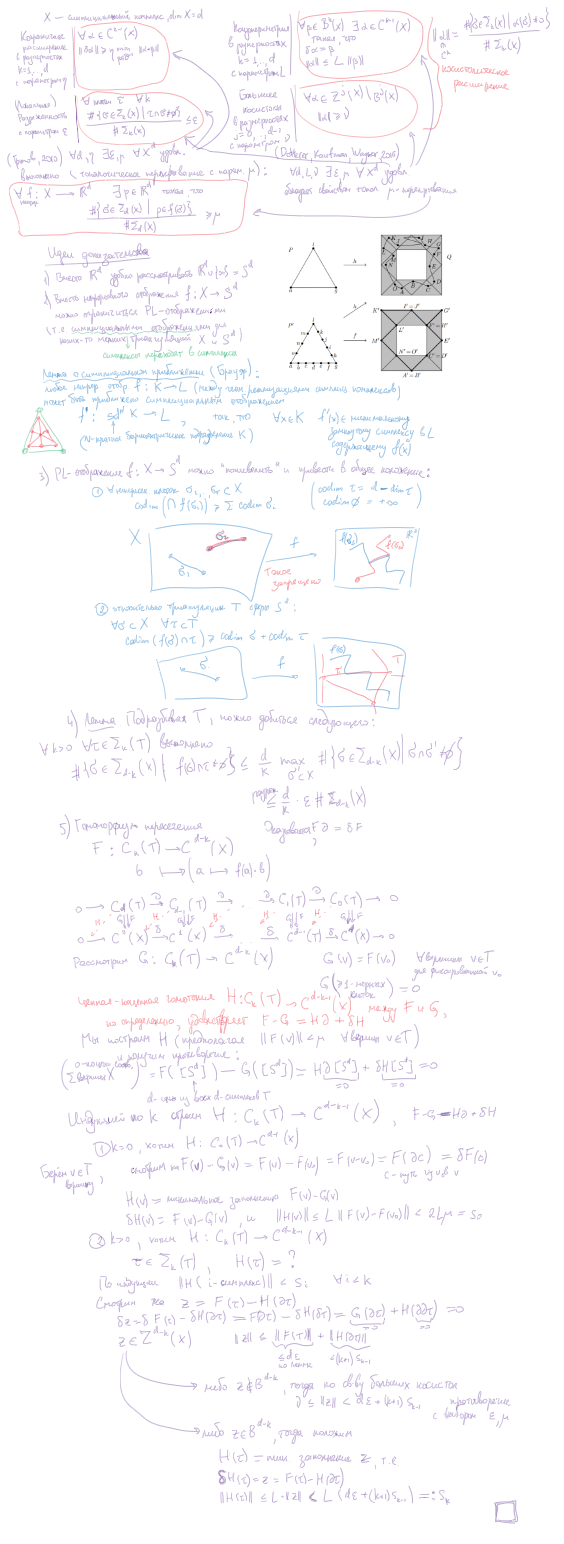 X — симплициальный комплекс, dim X = d
Кограничное расширение в размерностях k=1,..,d с параметром η
∀α ∈ C^{k-1}(X)
‖δα‖ ≥ η min ‖α+β‖
Коизопериметрия в размерностях k=1,..,d с параметром L
∀β ∈ B^k(X) ∃α ∈ C^{k-1}(X)
такая, что
δα = β
‖α‖ ≤ L‖β‖
‖α‖ = #{σ∈Σ_k(X) | α(σ)≠0} / #Σ_k(X)
косистолическое расширение
(Локальная) разреженность с параметром ε
#{σ∈Σ_k(X) | τ∩σ≠∅} / #Σ_k(X) ≤ ε
Большие косистолы в размерностях j=0,..,d-1 с параметром ν
∀α ∈ Z^j(X) \ B^j(X)
‖α‖ ≥ ν
(Громов, 2010) ∀d,η ∃ε,μ ∀X^d удовл.
выполнено (топологическое перекрывание с парам. μ):
(Dotterrer Kaufman Wagner 2016) ∀d,L,ν ∃ε,μ ∀X^d удовл.
обладает свойством топол. μ-перекрывания
∀ f: X → ℝ^d ∃p∈ℝ^d такая, что
непр.
#{σ∈Σ_d(X) | p∈f(σ)} / #Σ_d(X) ≥ μ
Идеи доказательства
1) Вместо ℝ^d удобно рассматривать ℝ^d ∪ {∞} = S^d
2) Вместо непрерывного отображения f: X → S^d
можно ограничиться PL-отображениями
(т.е. симплициальными отображениями для
каких-то мелких триангуляций X и S^d)
симплексы переходят в симплексы
Лемма о симплициальном приближении (Брауэр):
любое непрер. отобр. f: K → L (между геом. реализациями симплиц. комплексов)
может быть приближено симплициальным отображением
f': sd^N K → L, так, что ∀x∈K f'(x) ∈ минимальному
замкнутому симплексу в L
содержащему f(x)
(N-кратное барицентрическое подразделение K)
3) PL-отображение f: X → S^d можно "пошевелить" и привести в общее положение:
① ∀ клеток σ_1,..,σ_r ⊂ X
codim(∩ f(σ_i)) ≥ Σ codim σ_i
(codim τ = d − dim τ
codim ∅ = +∞)
X
σ_1
σ_2
f
такое запрещено
f(σ_1)
f(σ_2)
ℝ^2
② относительно триангуляции T сферы S^d:
∀σ⊂X ∀τ⊂T
codim(f(σ)∩τ) ≥ codim σ + codim τ
σ
f
f(σ)
τ
T
4) Лемма Подразбивая T, можно добиться следующего:
∀k>0 ∀τ∈Σ_k(T) выполнено
#{σ∈Σ_{d-k}(X) | f(σ)∩τ≠∅} ≤ d/k max_{σ'⊂X} #{σ∈Σ_{d-k}(X) | σ∩σ'≠∅}
≤ d/k · ε #Σ_{d-k}(X)
5) Гомоморфизм пересечения
F: C_k(T) → C^{d-k}(X)
b ↦ (a ↦ f(a)·b)
F∂ = δF
0 → C_d(T) →∂ C_{d-1}(T) →∂ ... →∂ C_1(T) →∂ C_0(T) → 0
0 → C^0(X) →δ C^1(X) →δ ... →δ C^{d-1}(X) →δ C^d(X) → 0
Рассмотрим G: C_k(T) → C^{d-k}(X)
G(v) = F(v_0) ∀вершины v∈T
для фиксированной v_0
G(≥1-мерных клеток) = 0
Цепная-коцепная гомотопия H: C_k(T) → C^{d-k-1}(X) между F и G,
по определению, удовлетворяет F − G = H∂ + δH
Мы построим H (предполагая ‖F(v)‖<μ ∀верш. v∈T)
и получим противоречие:
(0-коцепь Σ вершин X) = F([S^d]) − G([S^d]) = H∂[S^d] + δH[S^d] = 0
=0
=0
d-цикл из всех d-симплексов T
Индукцией по k строим H: C_k(T) → C^{d-k-1}(X), F − G = H∂ + δH
① k=0, хотим H: C_0(T) → C^{d-1}(X)
Берём v∈T вершину, смотрим на F(v) − G(v) = F(v) − F(v_0) = F(v−v_0) = F(∂c) = δF(c)
c – путь из v_0 в v
H(v) = минимальное заполнение F(v)−G(v)
δH(v) = F(v)−G(v), и ‖H(v)‖ ≤ L‖F(v)−F(v_0)‖ < 2Lμ = s_0
② k>0, хотим H: C_k(T) → C^{d-k-1}(X)
τ∈Σ_k(T), H(τ) = ?
По индукции ‖H(i-симплекс)‖ < s_i ∀i<k
Смотрим на z = F(τ) − H(∂τ)
δz = δF(τ) − δH(∂τ) = F(∂τ) − δH(∂τ) = G(∂τ) + H(∂∂τ) = 0
=0
=0
z∈Z^{d-k}(X) ‖z‖ ≤ ‖F(τ)‖ + ‖H(∂τ)‖
≤dε по лемме
<(k+1)s_{k-1}
либо z∉B^{d-k}, тогда по св-ву больших косистол
ν ≤ ‖z‖ < dε+(k+1)s_{k-1} противоречие
с выбором ε, μ
либо z∈B^{d-k}, тогда положим
H(τ) = мин. заполнение z, т.е.
δH(τ) = z = F(τ) − H(∂τ)
‖H(τ)‖ ≤ L·‖z‖ < L(dε+(k+1)s_{k-1}) =: s_k